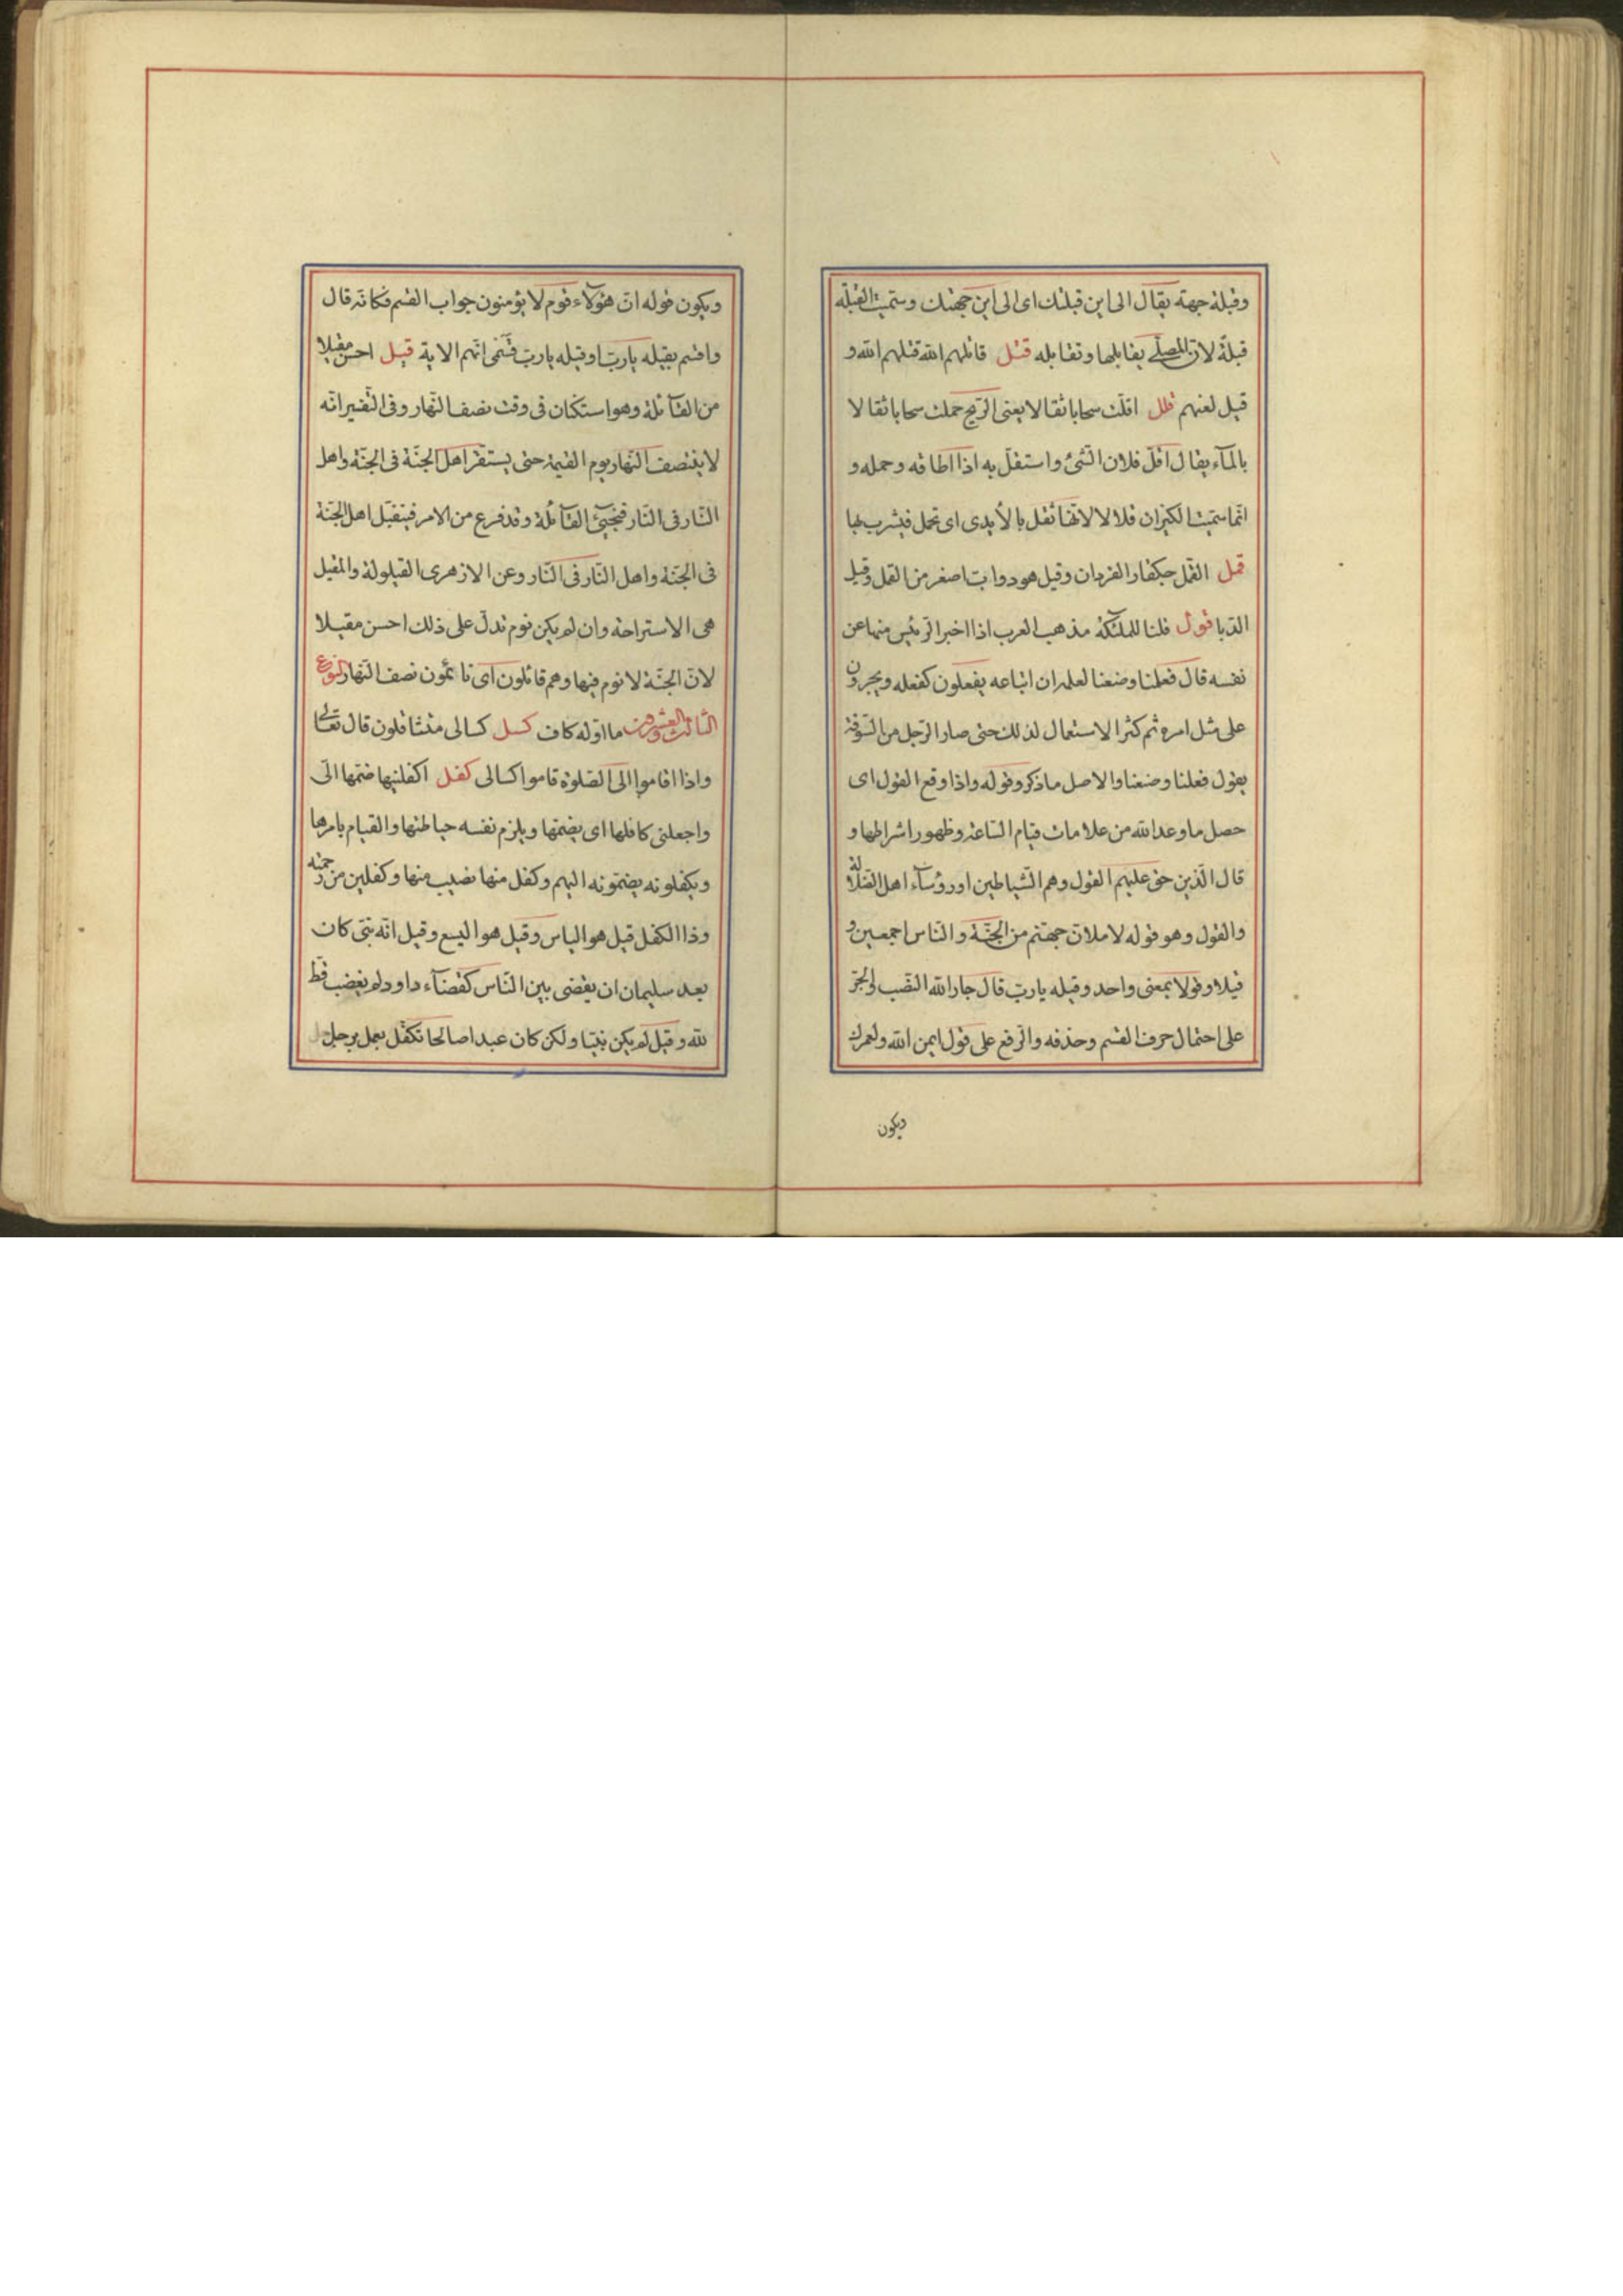 وقبلة جهة يقال الى اين قبلتك اى الى اين جهتك وسميت القبلة
قبلة لان المصلى يقابلها وتقابله قتل قاتلهم الله قتلهم الله و
قيل لعنهم قلل اقلت سحابا ثقالا يعنى الريح حملت سحابا ثقالا لا
بالمآء يقال اقل فلان الشئ واستقل به اذا اطاقه وحمله و
انما سميت الكيزان قلالا لانها تقل بالأيدى اى تحمل فيشرب بها
قمل القمل حبكفار القردان وقيل هو دواب اصغر من القمل وقيل
الدبا قول قلنا للملئكة مذهب العرب اذا اخبر الرئيس منها عن
نفسه قال فعلنا وضعنا لعلمه ان اتباعه يفعلون كفعله ويجرون
على مثل امره ثم كثر الاستعمال لذلك حتى صار الرجل من السوقة
يقول فعلنا وضعنا والاصل ما ذكر وقوله واذا وقع القول اى
حصل ما وعد الله من علامات قيام الساعة وظهور اشراطها و
قال الذين حق عليهم القول وهم الشياطين او رؤسآء اهل الضلالة
والقول وهو قوله لاملان جهنم من الجنة والناس اجمعين و
قيلا وقولا بمعنى واحد وقيله يارب قال جار الله النصب والجر
على احتمال حرف القسم وحذفه والرفع على قول ايمن الله ولعمرك
ويكون
ويكون قوله ان هؤلآء قوم لا يؤمنون جواب القسم فكانه قال
واقسم بقيله يارب او قيله يارب قسمى انهم الاية قيل احسن مقيلا
من القآئلة وهو استكان فى وقت نصف النهار وفى التفسير انه
لا ينتصف النهار يوم القيمة حتى يستقر اهل الجنة فى الجنة واهل
النار فى النار فتجيئ القآئلة وقد فرع من الامر فيتقيل اهل الجنة
فى الجنة واهل النار فى النار وعن الازهرى القيلولة والمقيل
هى الاستراحة وان لم يكن نوم تدل على ذلك احسن مقيلا
لان الجنة لا نوم فيها وهم قائلون اى نائمون نصف النهار النوع
الثالث والعشرون ما اوله كاف كسل كسالى متثاقلون قال تعالى
واذا اقاموا الى الصلوة قاموا كسالى كفل اكفلنيها ضمها الى
واجعلنى كافلها اى يضمها ويلزم نفسه حياطتها والقيام بامرها
ويكفلونه يضمونه اليهم وكفل منها نصيب منها وكفلين من رحمته
وذا الكفل قيل هو الياس وقيل هو اليسع وقيل انه نبى كان
بعد سليمان ان يقضى بين الناس كقضآء داود ولم يغضب قط
لله وقيل لم يكن نبيا ولكن كان عبدا صالحا تكفل بعمل رجل